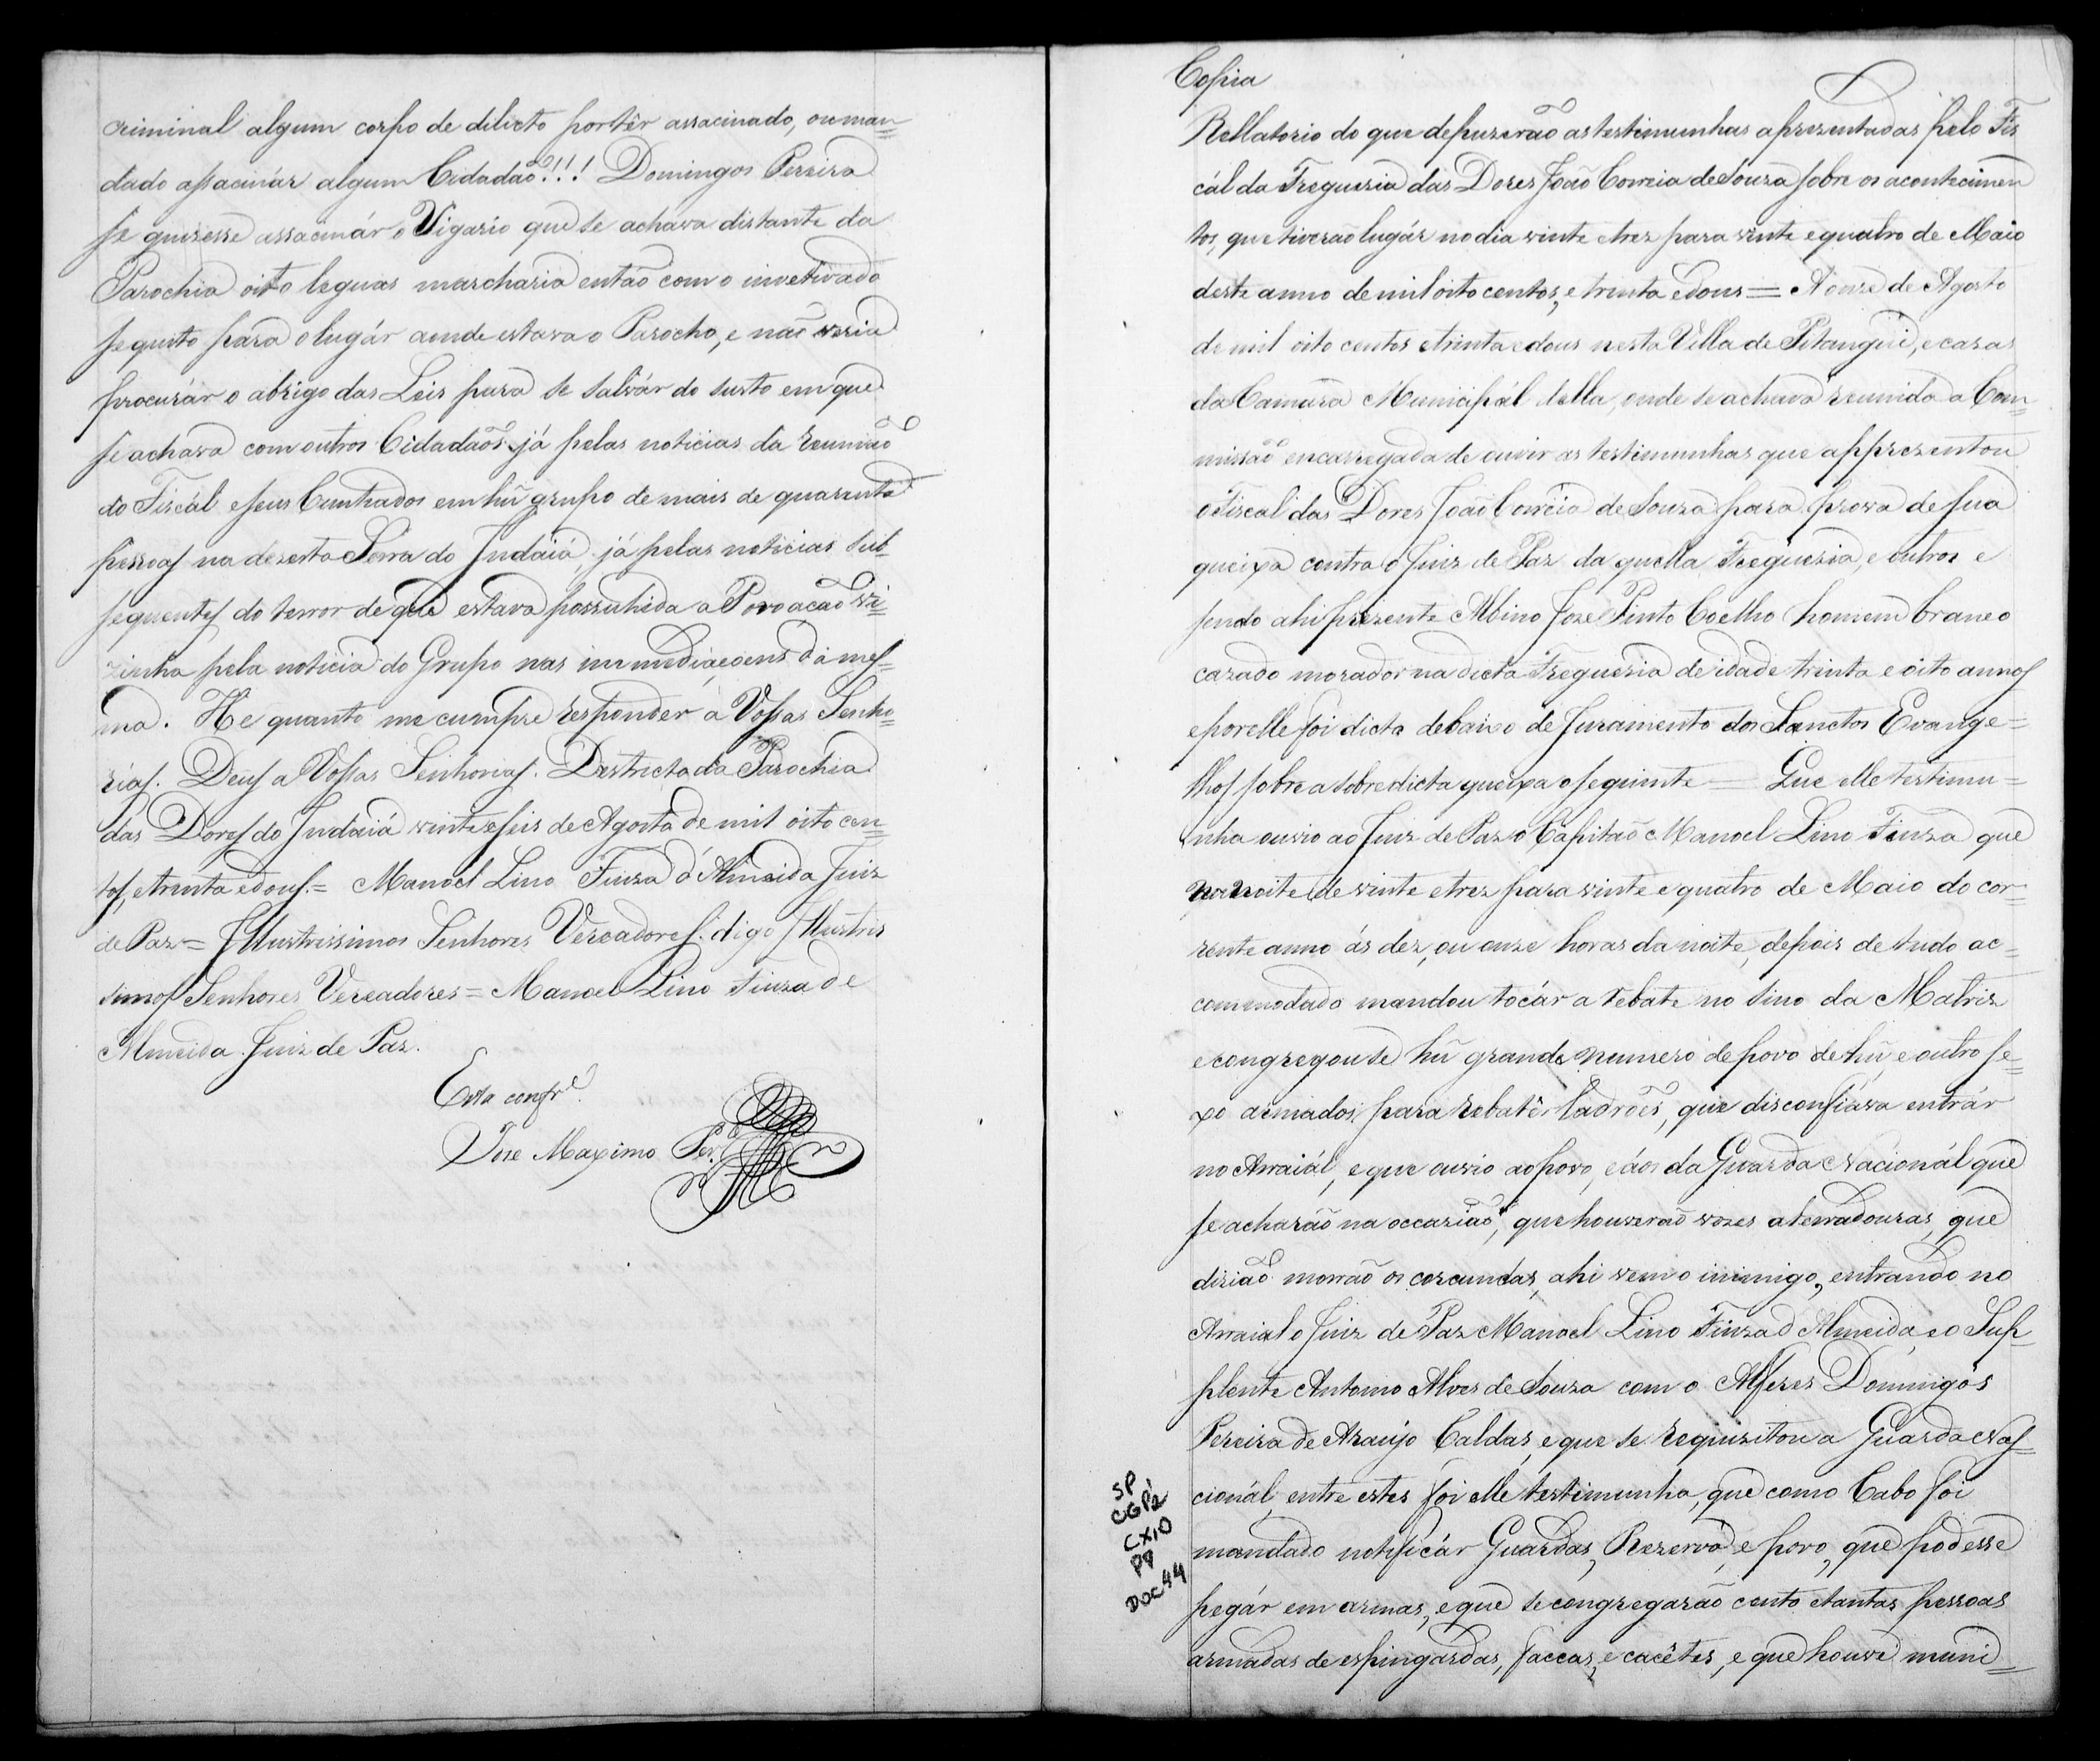 criminal algum corpo de delicto por têr assacinado, ou man=
dado assacinár algum Cidadaõ?!!! Domingos Pereira
se quizesse assacinár o Vigario que se achava distante da
Parochia oito leguas marcharia entaõ com o invetivado
sequito para o lugár aonde estava o Parocho, e naõ viria
procurár o abrigo das Leis para se salvár do susto em que
se achava com outros Cidadaõs já pelas noticias da reuniaõ
do Fiscál e seus Cunhados em hũ grupo de mais de quarenta
pessoas na dezerta Serra do Indaiá, já pelas noticias sub=
sequentes do terror de que estava possuhida a Povoacaõ vi=
zinha pela noticia do Grupo nas immediacoens da mes=
ma. He quanto me cumpre responder a Vossas Senho=
rias. Deus a Vossas Senhorias. Destricto da Parochia
das Dores do Indaiá vinte e seis de Agosto de mil oito cen=
tos, e trinta e dous.= Manoel Lino Fiuza d'Almeida Juiz
de Paz = Illustrissimos Senhores Vereadores. digo Illustris
simos Senhores Vereadores = Manoel Lino Fiuza de
Almeida Juiz de Paz.
Esta confr.e
Joze Maximo Per.a
Copia
Rellatorio do que depuzeraõ as testimunhas aprezentadas pelo Fis
cál da Freguezia das Dores Joaõ Correia de Souza sobre os acontecimen
tos, que tiveraõ lugár no dia vinte e trez para vinte e quatro de Maio
deste anno de mil oito centos, e trinta e dous = A onze de Agosto
de mil oito centos e trinta e dous nesta Villa de Pitangui, e cazas
da Camara Municipál della, onde se achava reunida a Com=
missaõ encarregada de ouvir as testimunhas que apprezentou
o Fiscal das Dores Joaõ Correia de Souza para prova de sua
queixa contra o Juiz de Paz da quella Freguezia, e outros e
sendo ahi prezente Albino Joze Pinto Coelho homem branco
cazado morador na dicta Freguezia de idade trinta e oito annos
e por elle foi dicto debaixo de Juramento dos Sanctos Evange=
lhos sobre a sobredicta queixa o seguinte = Que elle testimu=
nha ouvio ao Juiz de Paz o Capitaõ Manoel Lino Fiuza que
na noite de vinte e trez para vinte e quatro de Maio do cor=
rente anno ás dez, ou onze horas da noite, depois de tudo ac=
commodado mandou tocár a rebate no sino da Matriz
e congregouse hũ grande numero de povo de hũ, e outro se=
xo armados para rebatêr ladrões, que disconfiáva entrár
no Arraiál, e que ouvio ao povo, e áos da Guarda Nacionál que
se acharaõ na occaziaõ, que houveraõ vozes aterradouras, que
diziaõ morraõ os corcundas, ahi vem o inimigo, entrando no
Arraial o Juiz de Paz Manoel Lino Fiuza d'Almeida, e o Sup=
plente Antonio Alves de Souza com o Alferes Domingos
Pereira de Araujo Caldas, e que se requizitou a Guarda Nas=
cionál, entre estes foi elle testimunha, que como Cabo foi
mandado notificár Guardas, Rezerva, e povo, que podesse
pegár em armas, e que se congregaraõ cento e tantas pessoas
armadas de espingardas, faccas, e cacêtes, e que houve muni=
SP
CGP1
CX10
P2
DOC44